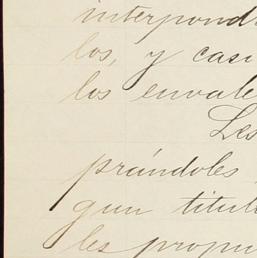 interpond
los, y casi
los envale
Les
prándoles
gun titul
les propu